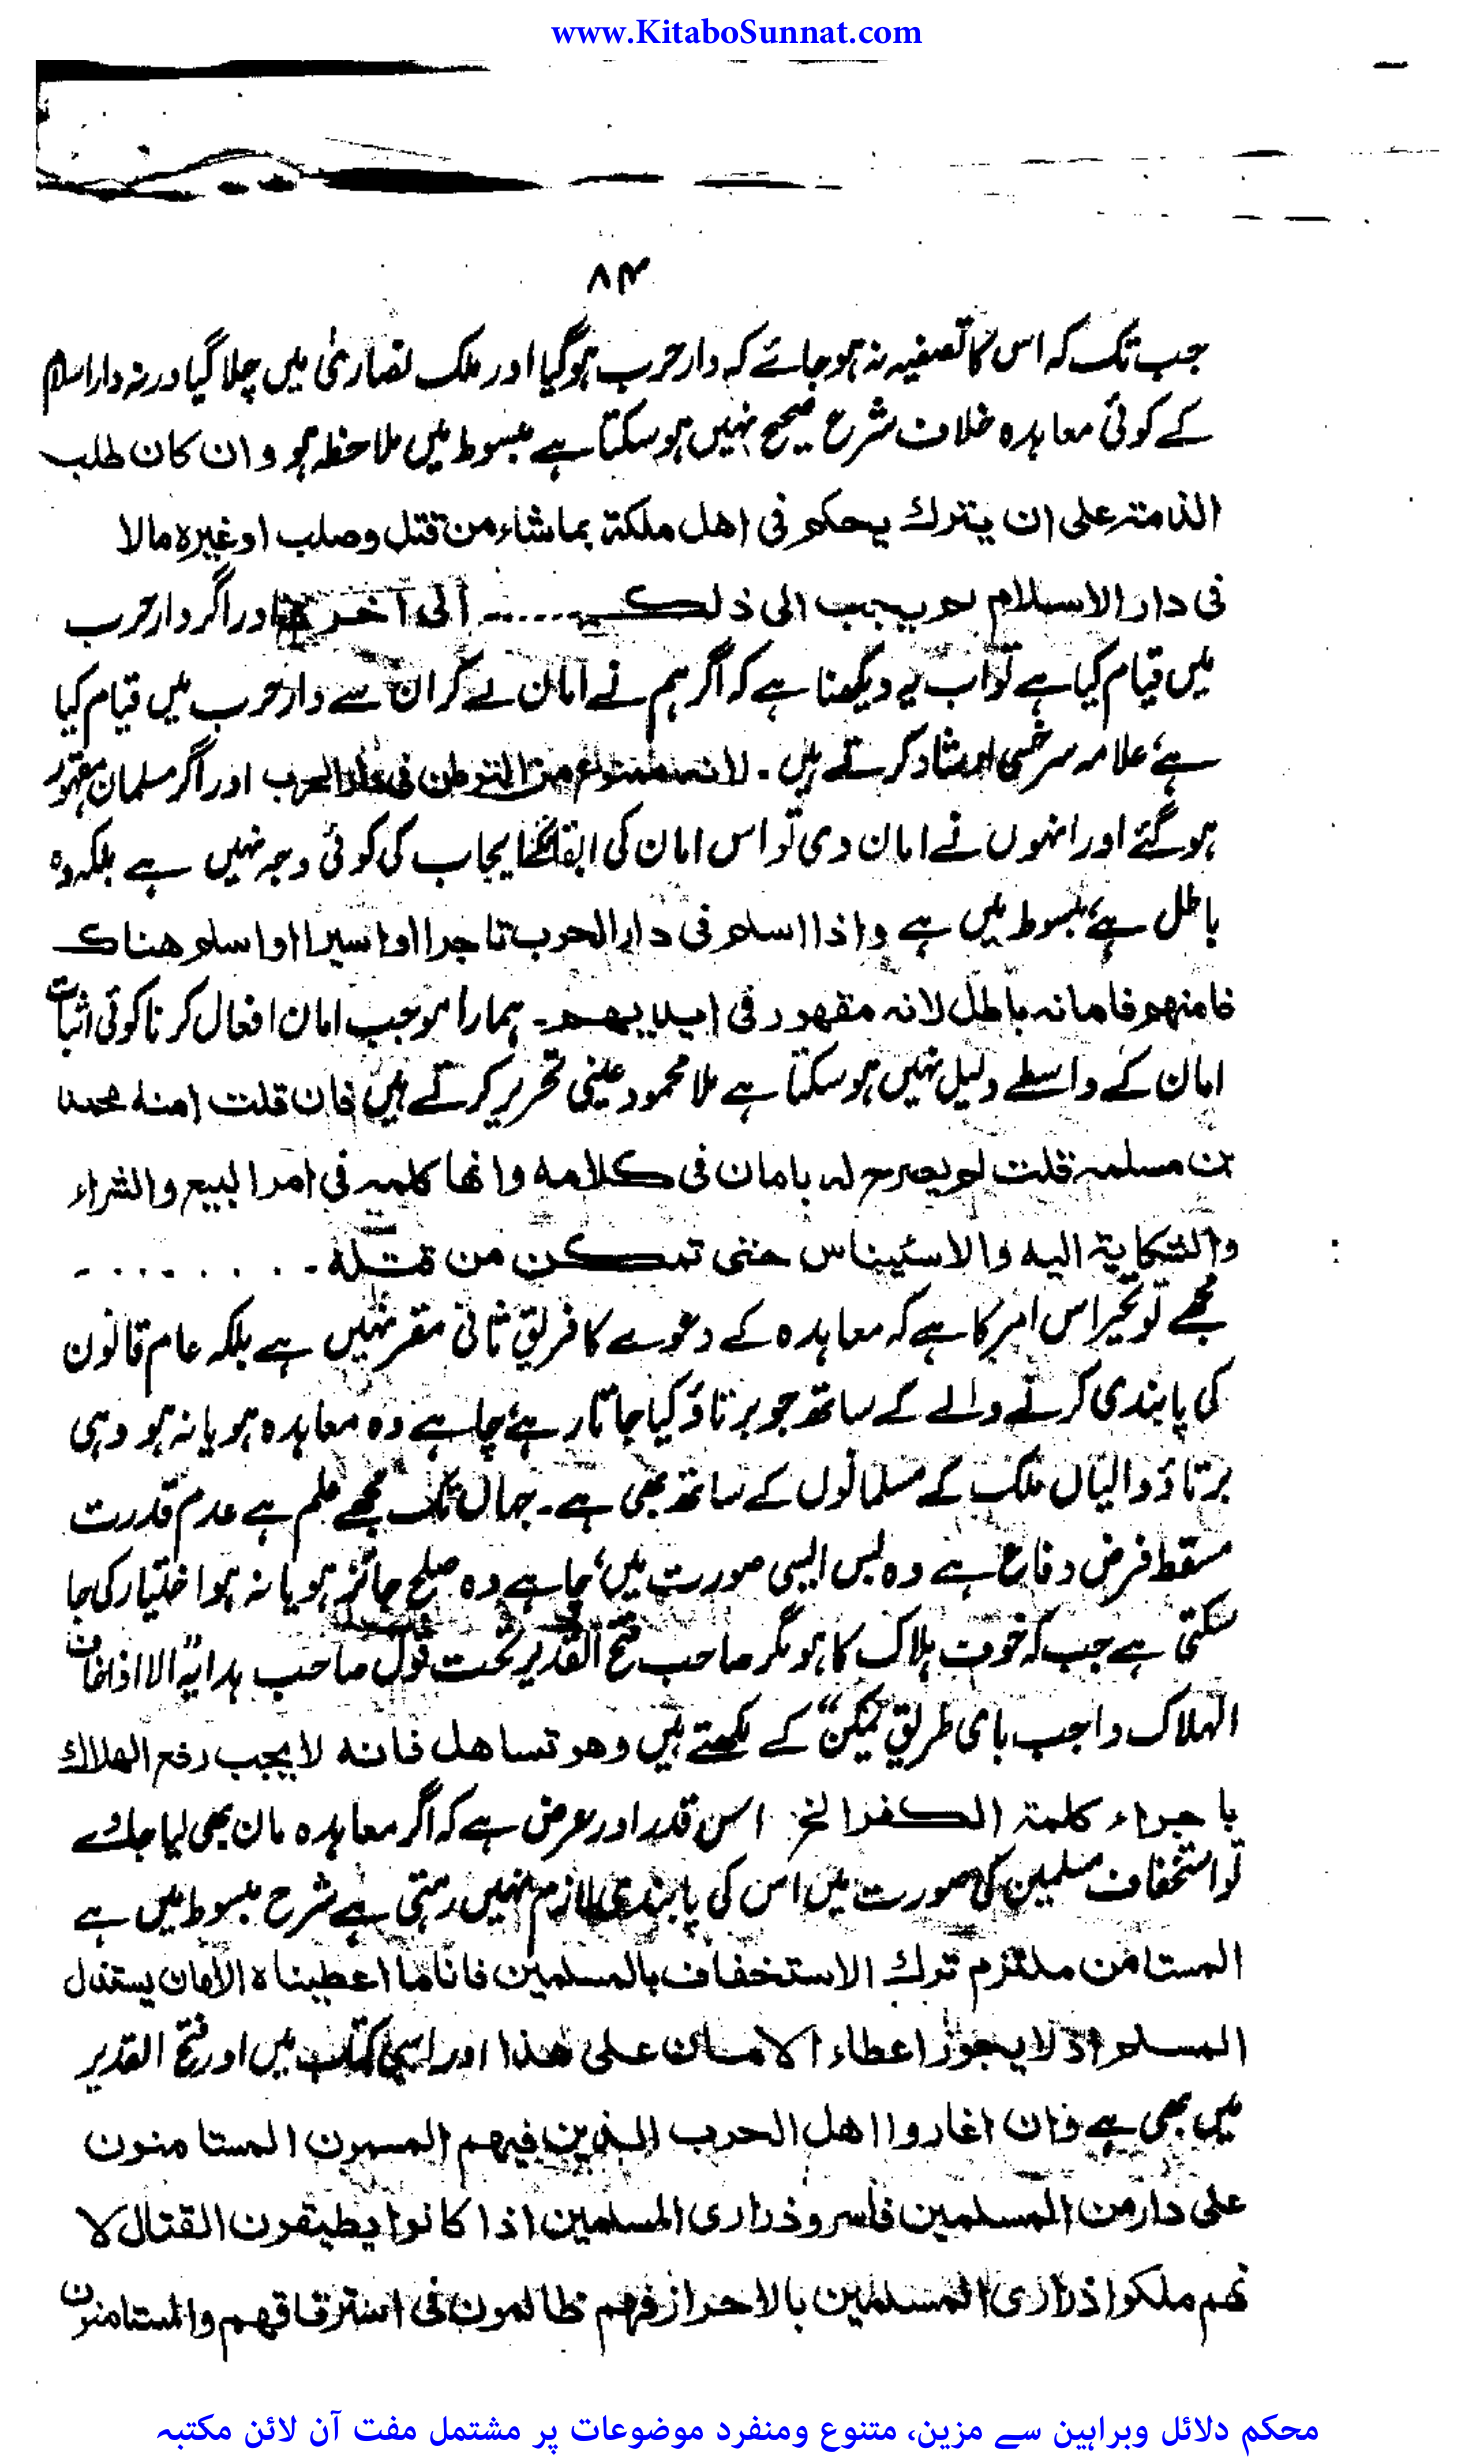 www.KitaboSunnat.com
۸۴
جب تک کہ اس کا تصفیہ نہ ہو جائے کہ دار حرب ہوگیا اور ملک نصاریٰ میں چلا گیا ورنہ دار اسلام
کے کوئی معاہدہ خلاف شرع صحیح نہیں ہو سکتا ہے مبسوط میں ملاحظہ ہو وان کان طلب
الذمتہ علی ان یترک یحکم فی اھل ملکة بماشاء من قتل وصلب او غیرہ مالا
فی دار الاسلام لم یجب الی ذلک ...... الی آخرہ اور اگر دار حرب
میں قیام کیا ہے تو اب یہ دیکھنا ہے کہ اگر ہم نے امان لے کر ان سے دار حرب میں قیام کیا
ہے، علامہ سرخسی ارشاد کرتے ہیں ۔ لانہ ممنوع من التوطن فی دار الحرب اور اگر مسلمان مقہور
ہو گئے اور انہوں نے امان دی تو اس امان کی ایجاب کی کوئی وجہ نہیں ہے بلکہ وہ
باطل ہے، مبسوط میں ہے واذا اسلم فی دار الحرب تاجرا او اسیرا او اسلم ھناک
فامنھم فامانہ باطل لانہ مقھور فی ایدیھم۔ ہمارا موجب امان افعال کرنا کوئی اثبات
امان کے واسطے دلیل نہیں ہو سکتا ہے ملا محمود عینی تحریر کرتے ہیں فان قلت امنہ محمد
بن مسلمہ قلت لم یصرح لہ بامان فی کلامہ وانما کلمہ فی امر البیع والشراء
والشکایة الیہ والاستیناس حتی تمکن من قتلہ ۔ ........
مجھے تو تحیر اس امر کا ہے کہ معاہدہ کے دعوے کا فریق ثانی مقر نہیں ہے بلکہ عام قانون
کی پابندی کرنے والے کے ساتھ جو برتاؤ کیا جاتا رہے، چاہے وہ معاہدہ ہو یا نہ ہو وہی
برتاؤ والیان ملک کے مسلمانوں کے ساتھ بھی ہے۔ جہاں تک مجھے علم ہے عدم قدرت
مسقط فرض دفاع ہے وہ بس ایسی صورت میں، چاہے وہ صلح جائز ہو یا نہ ہو اختیار کی جا
سکتی ہے جب کہ خوف ہلاک کا ہو مگر صاحب فتح القدیر تحت قول صاحب ہدایہ ”الا اذا خاف
الہلاک واجب بای طریق یمکن“ کے لکھتے ہیں وھو تساھل فانہ لا یجب رفع الھلاک
باجراء کلمة الکفر الخ اس قدر اور عرض ہے کہ اگر معاہدہ مان بھی لیا جائے
تو استخفاف مسلمین کی صورت میں اس کی پابندی لازم نہیں رہتی ہے شرح مبسوط میں ہے
المستامن ملتزم ترک الاستخفاف بالمسلمین فانا ما اعطیناہ الامان یستذل
المسلم اذ لا یجوز اعطاء الامان علی ھذا اور اسی کتاب میں اور فتح القدیر
میں بھی ہے فان اغاروا اھل الحرب الذین فیھم المسمرن المستامنون
علی دار من المسلمین فاسروا ذراری المسلمین اذا کانوا یطیقون القتال لا
نھم ملکوا ذراری المسلمین بالاحراز فھم ظالمون فی استرقاقھم والمستامنون
محکم دلائل وبراہین سے مزین، متنوع ومنفرد موضوعات پر مشتمل مفت آن لائن مکتبہ